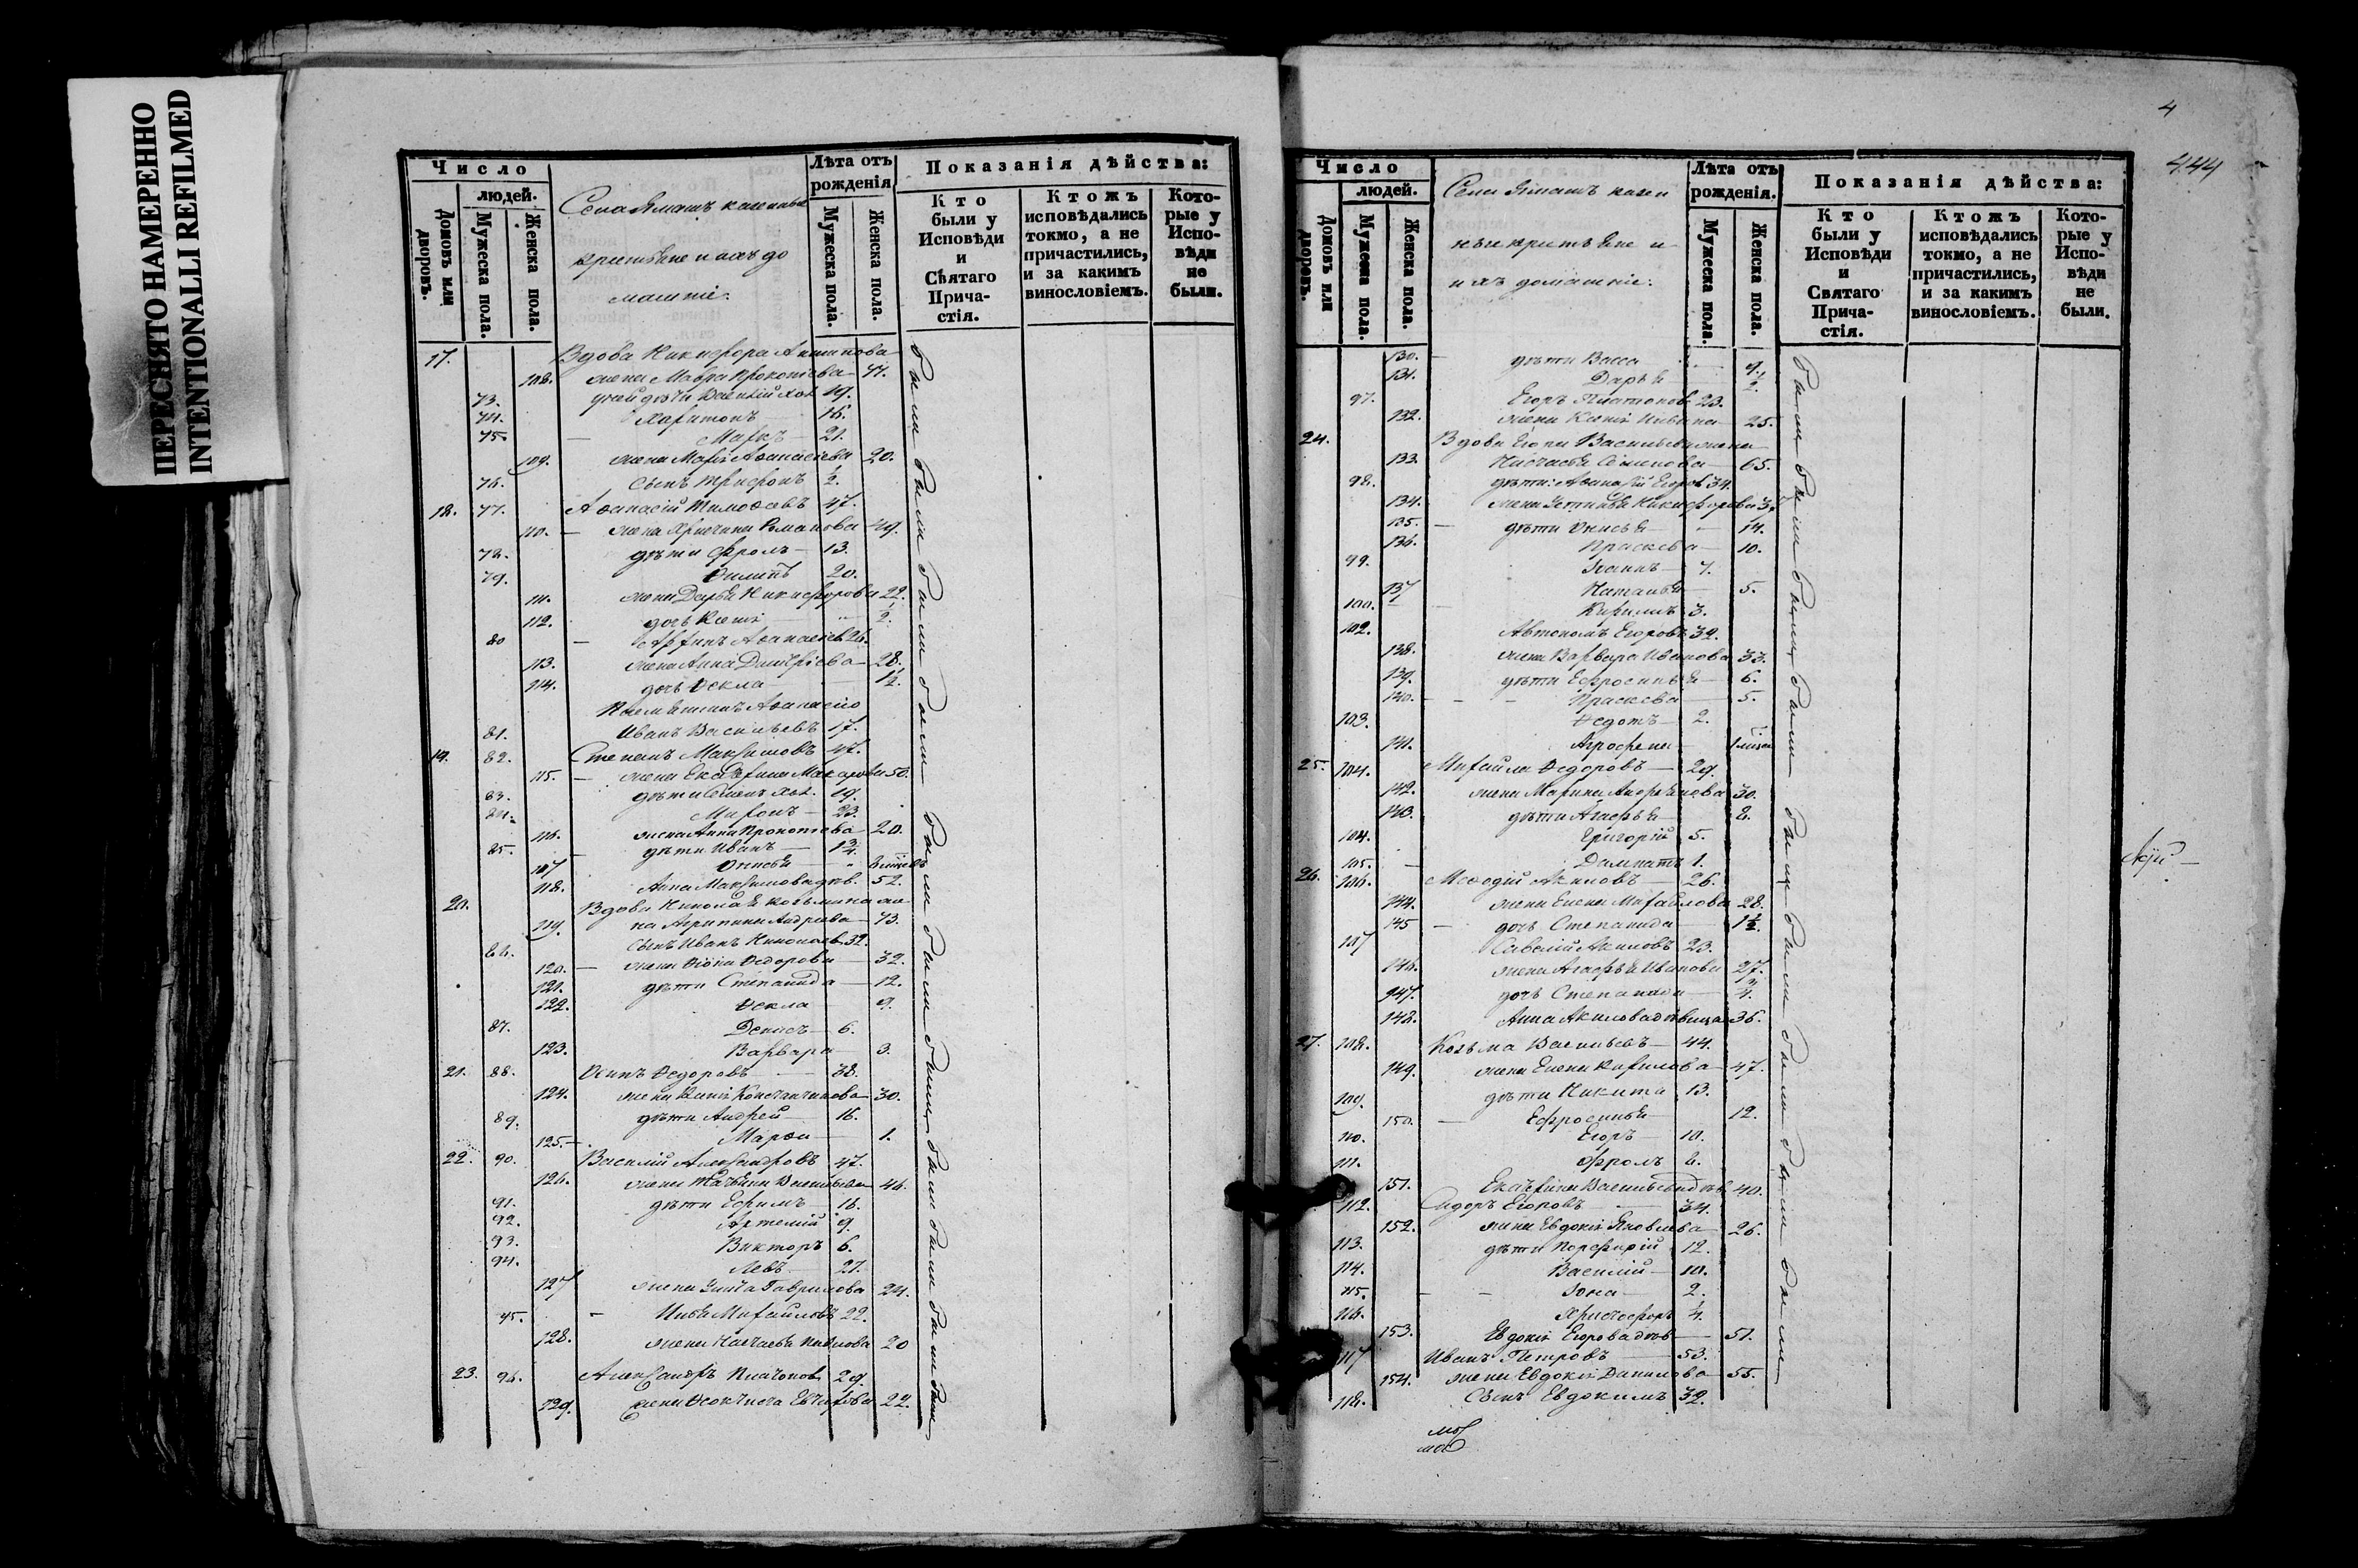 ПЕРЕСНЯТО НАМЕРЕННО
INTENTIONALLI REFILMED
Число
людей.
Домовъ или дворовъ.
Мужеска пола.
Женска пола.
Села казенные
крестьяне и ихъ до
машніе:
Лѣта отъ рожденія
Мужеска пола.
Женска пола.
Показанія дѣйства:
Кто были у Исповѣди и Святаго Прича-стія.
Ктожъ исповѣдались токмо, а не причастились, и за какимъ винословіемъ.
Кото-рые у Испо-вѣди не были.
17. Вдова Никифора
108. жена Мавра Прокопьева 47.
73. дѣти Василій хол. 19.
74. Харитонъ 16.
75. Маркъ 21.
109. жена Афанасіева 20.
76. сынъ Трифонъ 1/2.
18. 77. Афанасій Тимофѣевъ 47.
110. жена Романова 49.
78. дѣти Фролъ 13.
79. Филипъ 20.
111. жена Дарья Никифорова 22.
112. дочь Ксенія 1/2.
80 Афанасіевъ 26.
113. жена Анна Дмитріева 28.
114. дочь Фекла 1 1/2.
Афанасію
81. Иванъ Васильевъ 17.
19. 82. Степанъ Максимовъ 47.
115. жена Екатерина Макарова 50.
83. дѣти Семенъ хол. 19.
84. Миронъ 23.
116. жена Анна Прокопьева 20.
85. дѣти Иванъ 1 3/4.
117 Анисья
118. Анна Максимова дѣв. 52.
20. Вдова Николая Козьмина же
119. на Агрипина Андреева 73.
86. сынъ Иванъ Николаевъ 32.
120. жена Федорова 32.
121. дѣти Степанида 12.
122. Фекла 9.
87. Денисъ 6.
123. Варвара 3.
21. 88. Осипъ Федоровъ 38.
124. жена Ксенія Константинова 30.
89. дѣти Андрей 16.
125. Марфа 1.
22. 90. Василій Александровъ 47.
126. жена Татьяна Васильева 46.
91. дѣти Ефимъ 16.
92. Артемій 9.
93. Викторъ 6.
94. Левъ 27.
127 жена Гаврилова 24.
95. Илья Михайловъ 22.
128. жена Настасья 20
23. 96. Александръ Платоновъ 29.
129. жена Феоктиста 22.
были были были были были были были были были были были
4
444
Число
людей.
Домовъ или дворовъ.
Мужеска пола.
Женска пола.
Села казен
ные крестьяне и
ихъ домашніе:
Лѣта отъ рожденія.
Мужеска пола.
Женска пола.
Показанія дѣйства:
Кто были у Исповѣди и Святаго Прича-стія.
Ктожъ исповѣдались токмо, а не причастились, и за какимъ винословіемъ.
Кото-рые у Испо-вѣди не были.
130. дѣти Васса 9.
131. Дарья 1/2.
97. Егоръ Платоновъ 23.
132. жена Ксенія 25.
24. Вдова Егора Васильева жена
133. Настасья Семенова 65.
98. дѣти: Афанасій Егоровъ 34.
134. жена Устинья Никифорова
135. дѣти Анисья 14.
136. Прасковья 10.
99. Іоаннъ 7.
137 Наталья 5.
100. Кирилъ 3.
102. Автономъ Егоровъ 32.
138. жена Варвара Иванова 33.
139. дѣти Ефросинья 6.
140. Прасковья 5.
103. Федотъ 2.
141. Агрофена
25. 104. Михайла Федоровъ 29.
142. жена Марина Андреянова 30.
143. дѣти Агафья 8.
104. Григорій 5.
105. Далматъ 1.
26. 106. Мефодій Акимовъ 26.
144. жена Елена Михайлова 28.
145 дочь Степанида 1 1/2.
107 Савелій Акимовъ 23.
146. жена Агафья Иванова 27.
147. дочь Степанида 3/4.
148. Анна Акимова дѣвица 36.
27. 108. Козьма Васильевъ 44.
149. жена Елена Кирилова 47.
109. дѣти Никита 13.
150. Ефросинья 12.
110. Егоръ 10.
111. Фролъ 6.
151. Екатерина Васильева дѣв. 40.
112. Сидоръ Егоровъ 34.
152. жена Евдокія Яковлева 26.
113. дѣти Порфирій 12.
114. Василій 10.
115. Іона 2.
116. Христофоръ 1/4.
153. Евдокія Егорова дѣв. 51.
117 Иванъ Петровъ 53.
154. жена Евдокія Данилова 55.
118. сынъ Евдокимъ 32.
были были были были были были были были были были